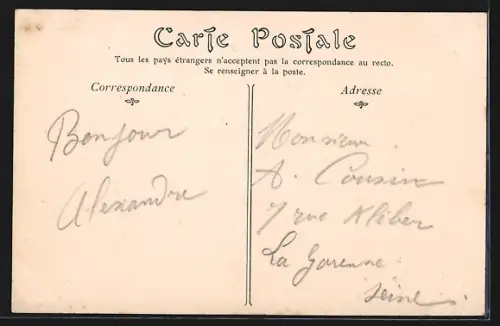 Carte Postale
Tous les pays étrangers n'acceptent pas la correspondance au recto.
Se renseigner à la poste.
Correspondance
Adresse
Bonjour
Alexandre
Monsieur
A. Cousin
7 rue Kléber
La Garenne
Seine